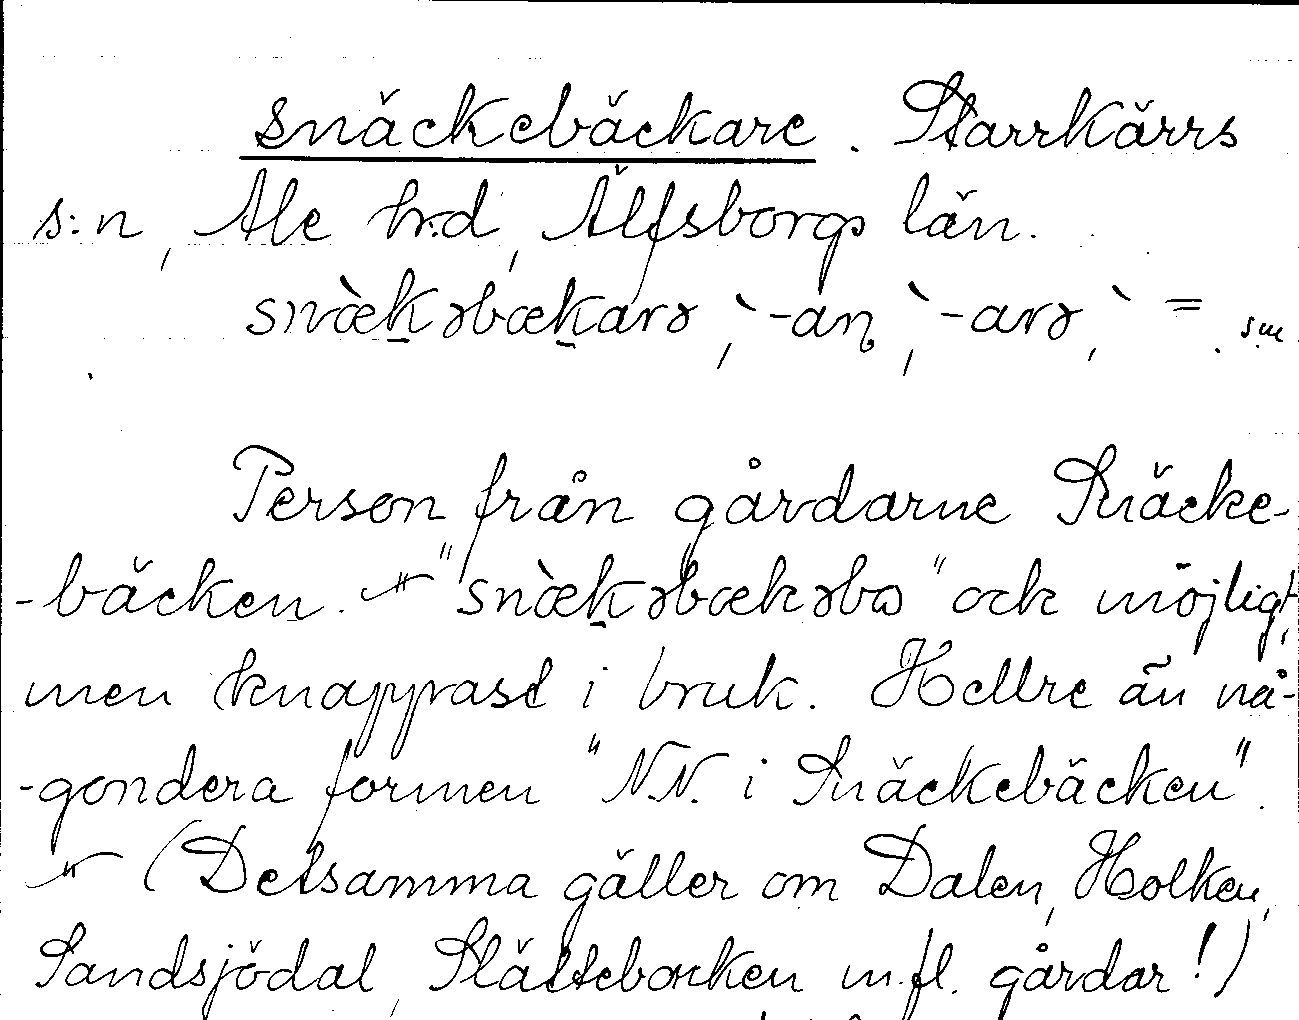 snäckebäckare. Starrkärrs
s:n, Ale h:d, Älfsborgs län.
snæ̀kəbækarə, -an, -arə, = . sm.
Person från gårdarne Snäcke-
-bäcken. "snæ̀kəbækəbo" ock möjligt,
men knappast i bruk. Hellre än nå-
-gondera formen "N.N. i Snäckebäcken".
(Detsamma gäller om Dalen, Holken,
Sandsjödal, Slättebacken m.fl. gårdar!)